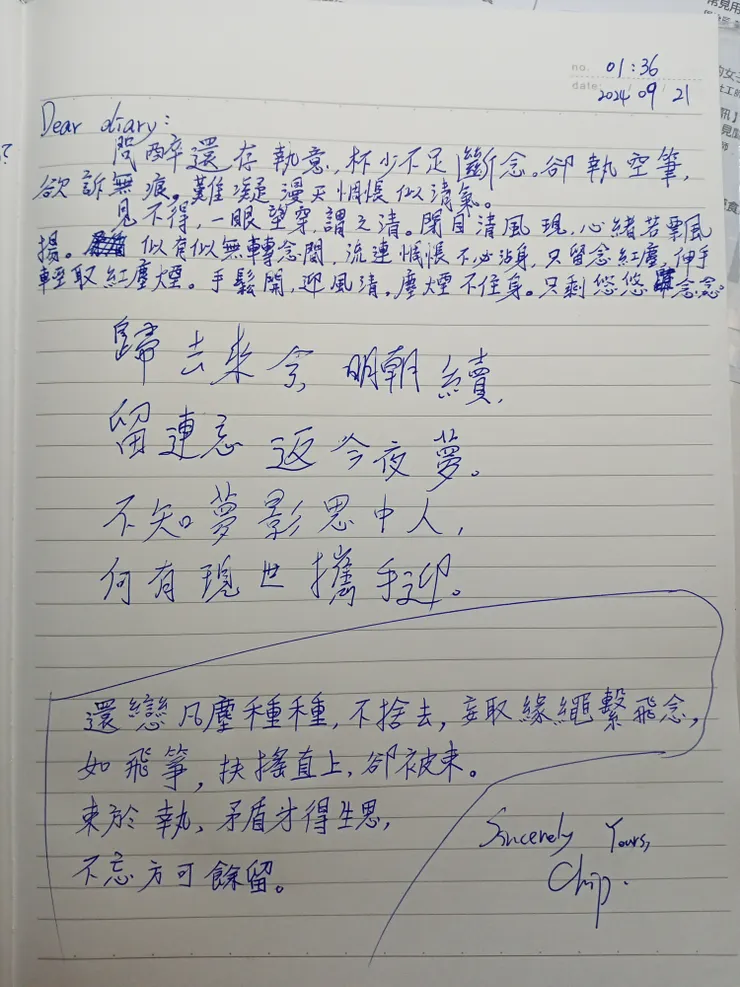 no. 01:36
date. 2024 09 21
Dear diary:
問醉還存執意,杯少不足斷念。卻執空筆,
欲訴無痕。難凝漫天惆悵似清氣。
見不得,一眼望穿,謂之清。閉目清風現,心緒若飄
揚。似有似無轉念間,流連惆悵不必沾身,只留念紅塵,伸手
輕取紅塵煙。手鬆開,迎風清。塵煙不住身。只剩悠悠念念。
歸去來兮,明朝續,
留連忘返今夜夢。
不知夢影思中人,
何有現世攜手迎。
還戀凡塵種種,不捨去,妄取緣繩繫飛念,
如飛箏,扶搖直上,卻被束。
束於執、矛盾才得生思,
不忘方可餘留。
Sincerely Yours,
Chip.